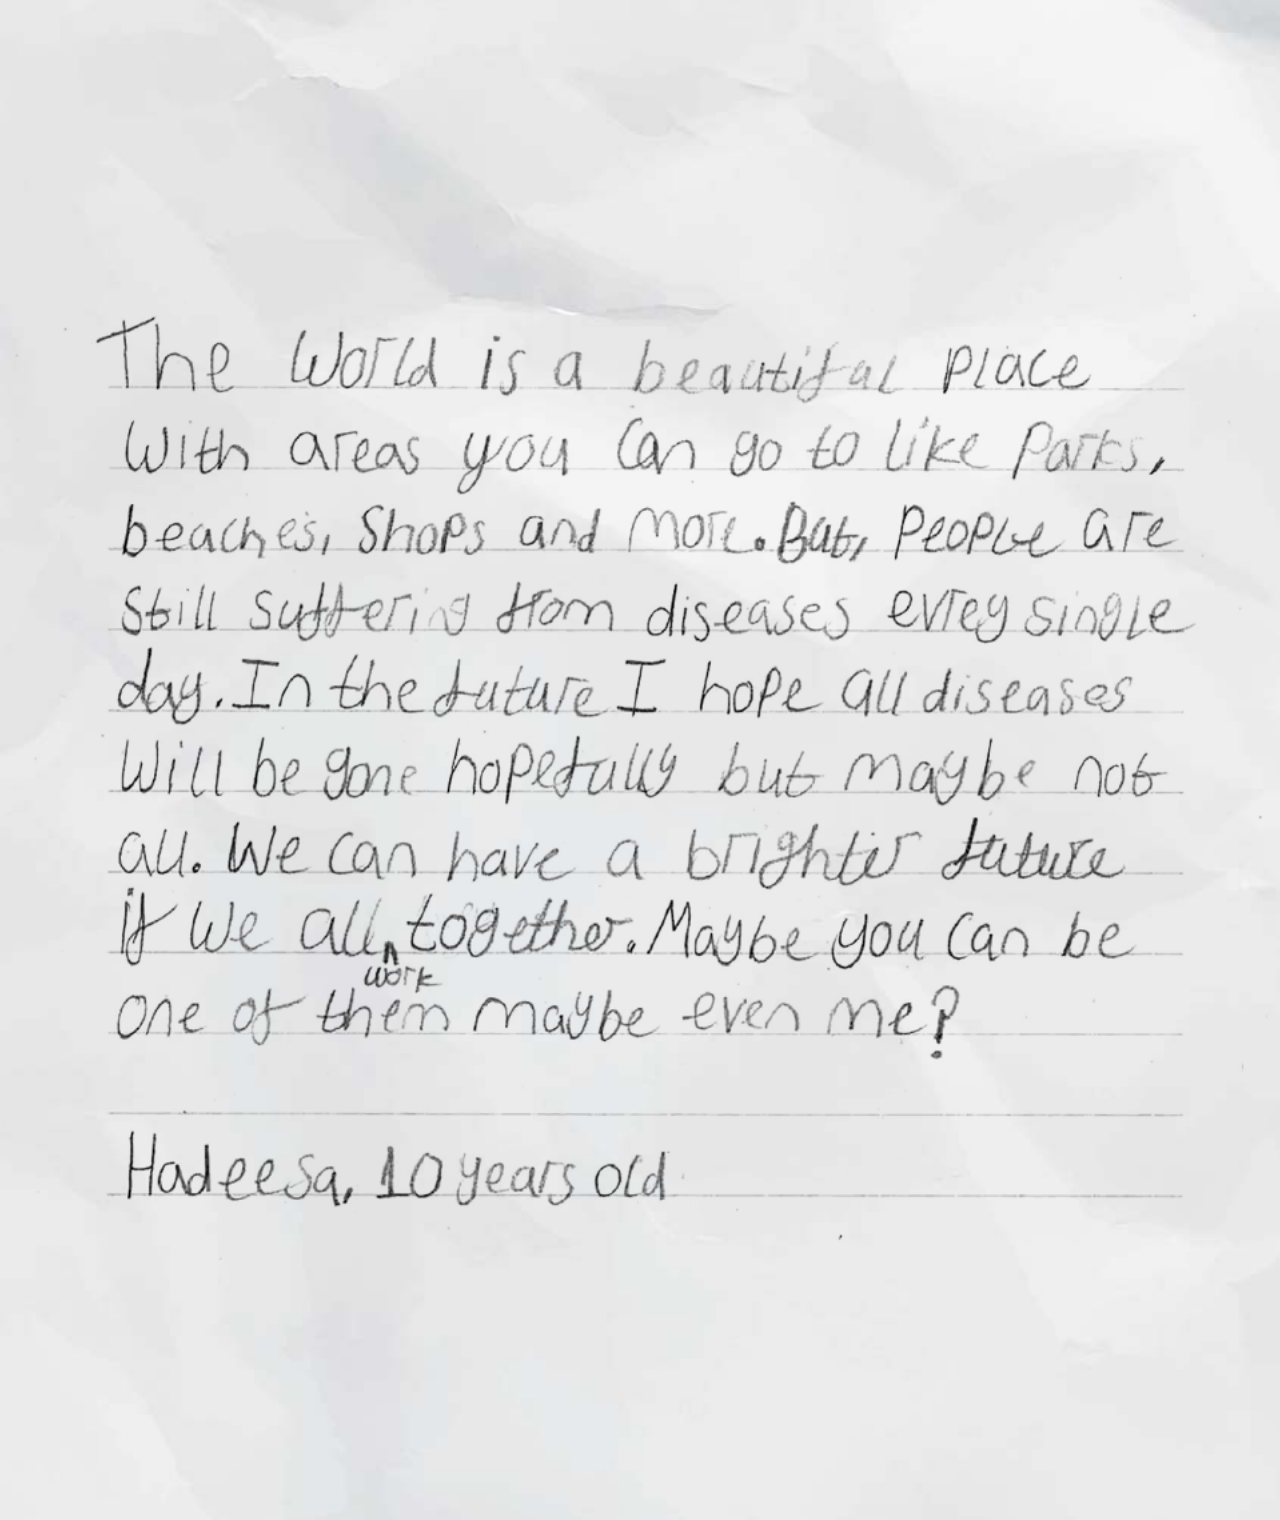 The World is a beautiful place
With areas you Can go to like Parks,
beaches, Shops and more. But, People are
Still suffering from diseases evrey single
day. In the future I hope all diseases
Will be gone hopefully but maybe not
all. We can have a brighter future
if We all work together. Maybe you can be
one of them maybe even me?
Hadeesa, 10 years old